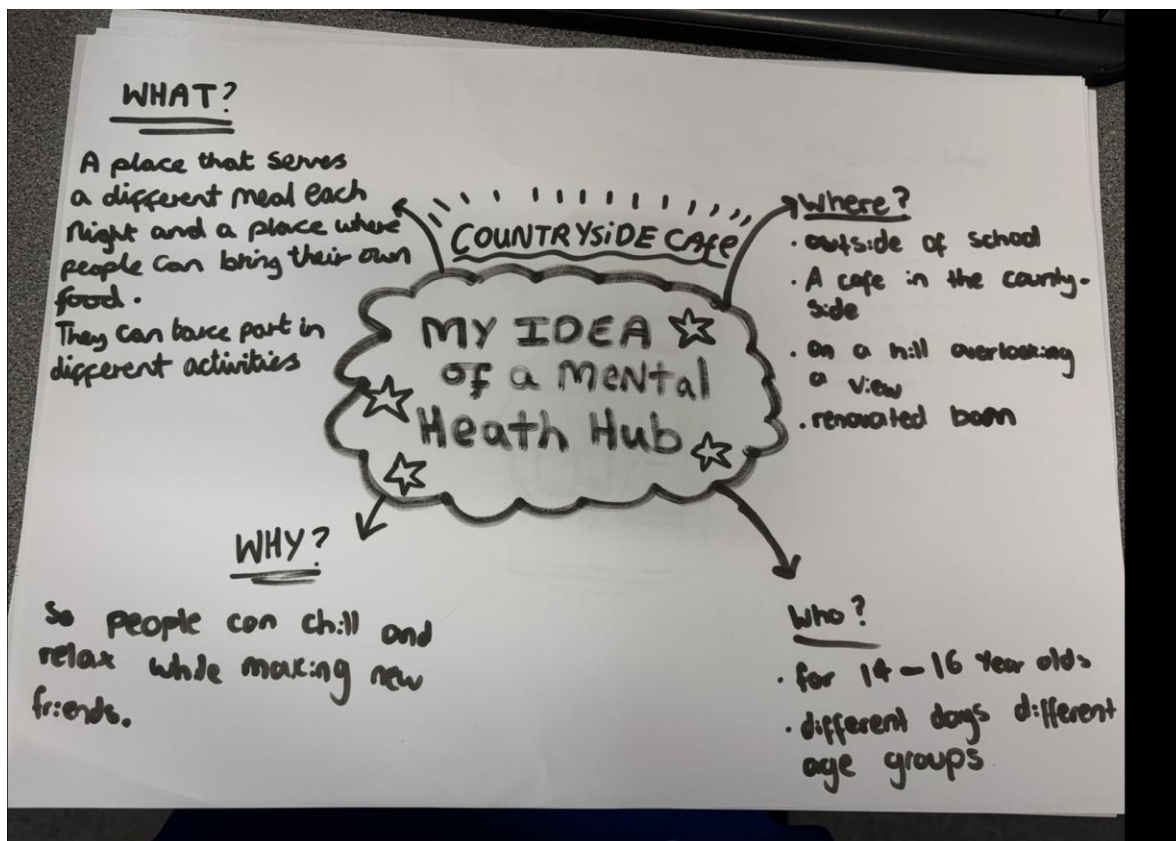 WHAT?
A place that serves
a different meal each
night and a place where
people can bring their own
food.
They can take part in
different activities
COUNTRYSiDE CAfe
MY IDEA
of a MeNtal
Heath Hub
Where?
· outside of school
· A cafe in the county-
side
· on a hill overlooking
a view
· renovated barn
WHY?
So people can chill and
relax while making new
friends.
Who?
· for 14 - 16 Year olds
· different days different
age groups